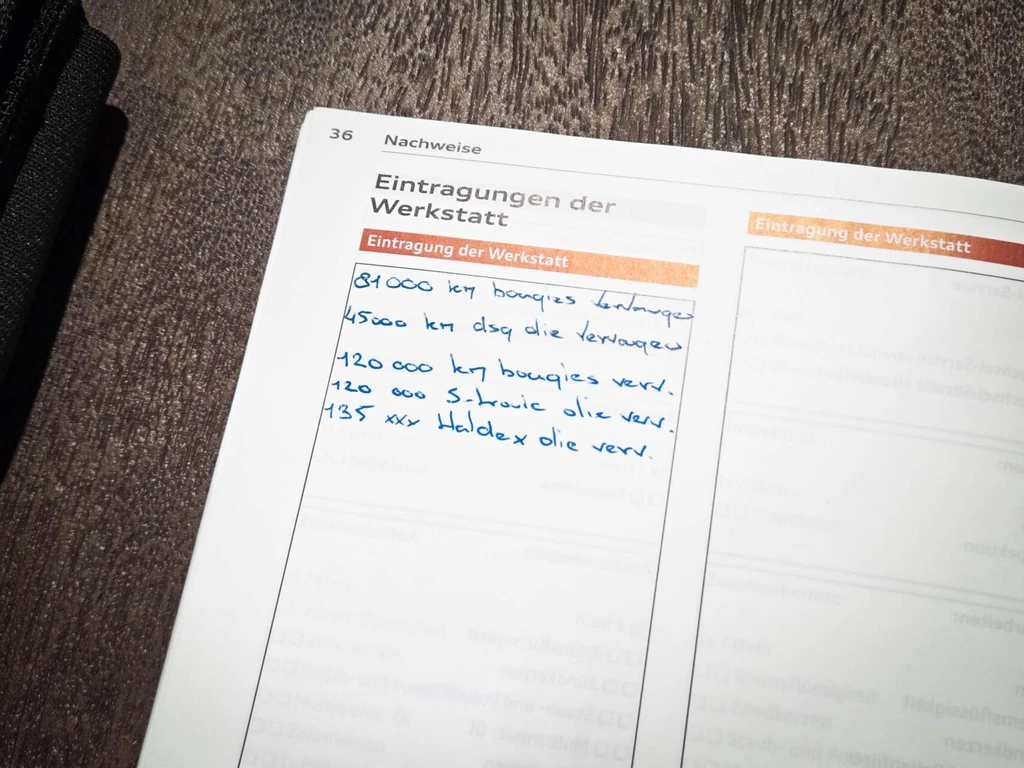 36 Nachweise
Eintragungen der
Werkstatt
Eintragung der Werkstatt
81000 km bougies vervangen
45000 km dsg olie vervangen
120 000 km bougies verv.
120 000 S-tronic olie verv.
135 xxx Haldex olie verv.
Eintragung der Werkstatt